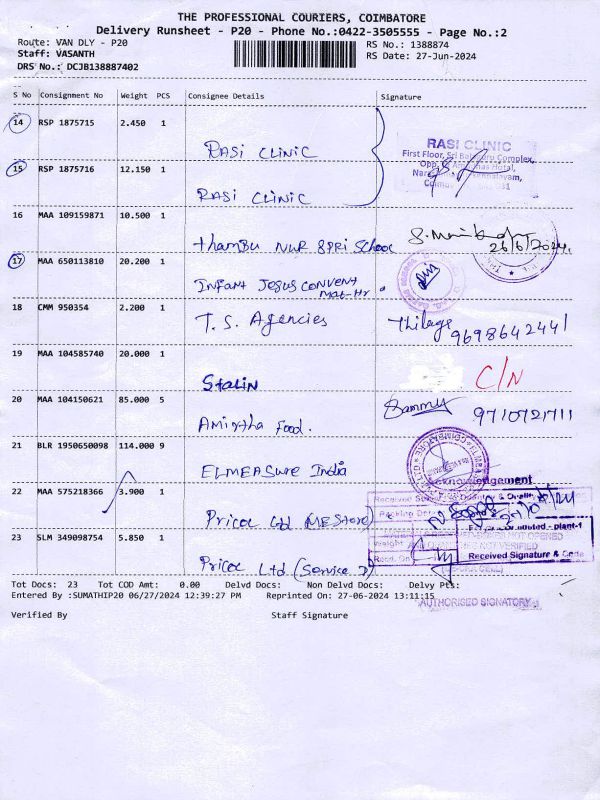 THE PROFESSIONAL COURIERS, COIMBATORE
Delivery Runsheet - P20 - Phone No.:0422-3505555 - Page No.:2
Route: VAN DLY - P20
RS No.: 1388874
Staff: VASANTH
RS Date: 27-Jun-2024
DRS No.: DCJB138887402
S No Consignment No Weight PCS Consignee Details Signature
14 RSP 1875715 2.450 1
RASI CLINIC
RASI CLINIC
First Floor, Sri Complex,
15 RSP 1875716 12.150 1
RASI CLINIC
16 MAA 109159871 10.500 1
Thambu NUR &PRI School
26/6/2024.
17 MAA 650113810 20.200 1
Infant Jesus Convent
Mat-Hr.
18 CMM 950354 2.200 1
T. S. Agencies Thilaga
9698642441
19 MAA 104585740 20.000 1
Stalin C/N
20 MAA 104150621 85.000 5
Amirtha Food. 9710721711
21 BLR 1950650098 114.000 9
ELMEASURE India
Acknowledgement
22 MAA 575218366 3.900 1
Pricol Ltd (ME Store)
plant-1
23 SLM 349098754 5.850 1
Received Signature & Code
Pricol Ltd (Service)
Tot Docs: 23 Tot COD Amt: 0.00 Delvd Docs: Non Delvd Docs: Delvy Pts:
Entered By :SUMATHIP20 06/27/2024 12:39:27 PM Reprinted On: 27-06-2024 13:11:15
AUTHORISED SIGNATORY
Verified By Staff Signature